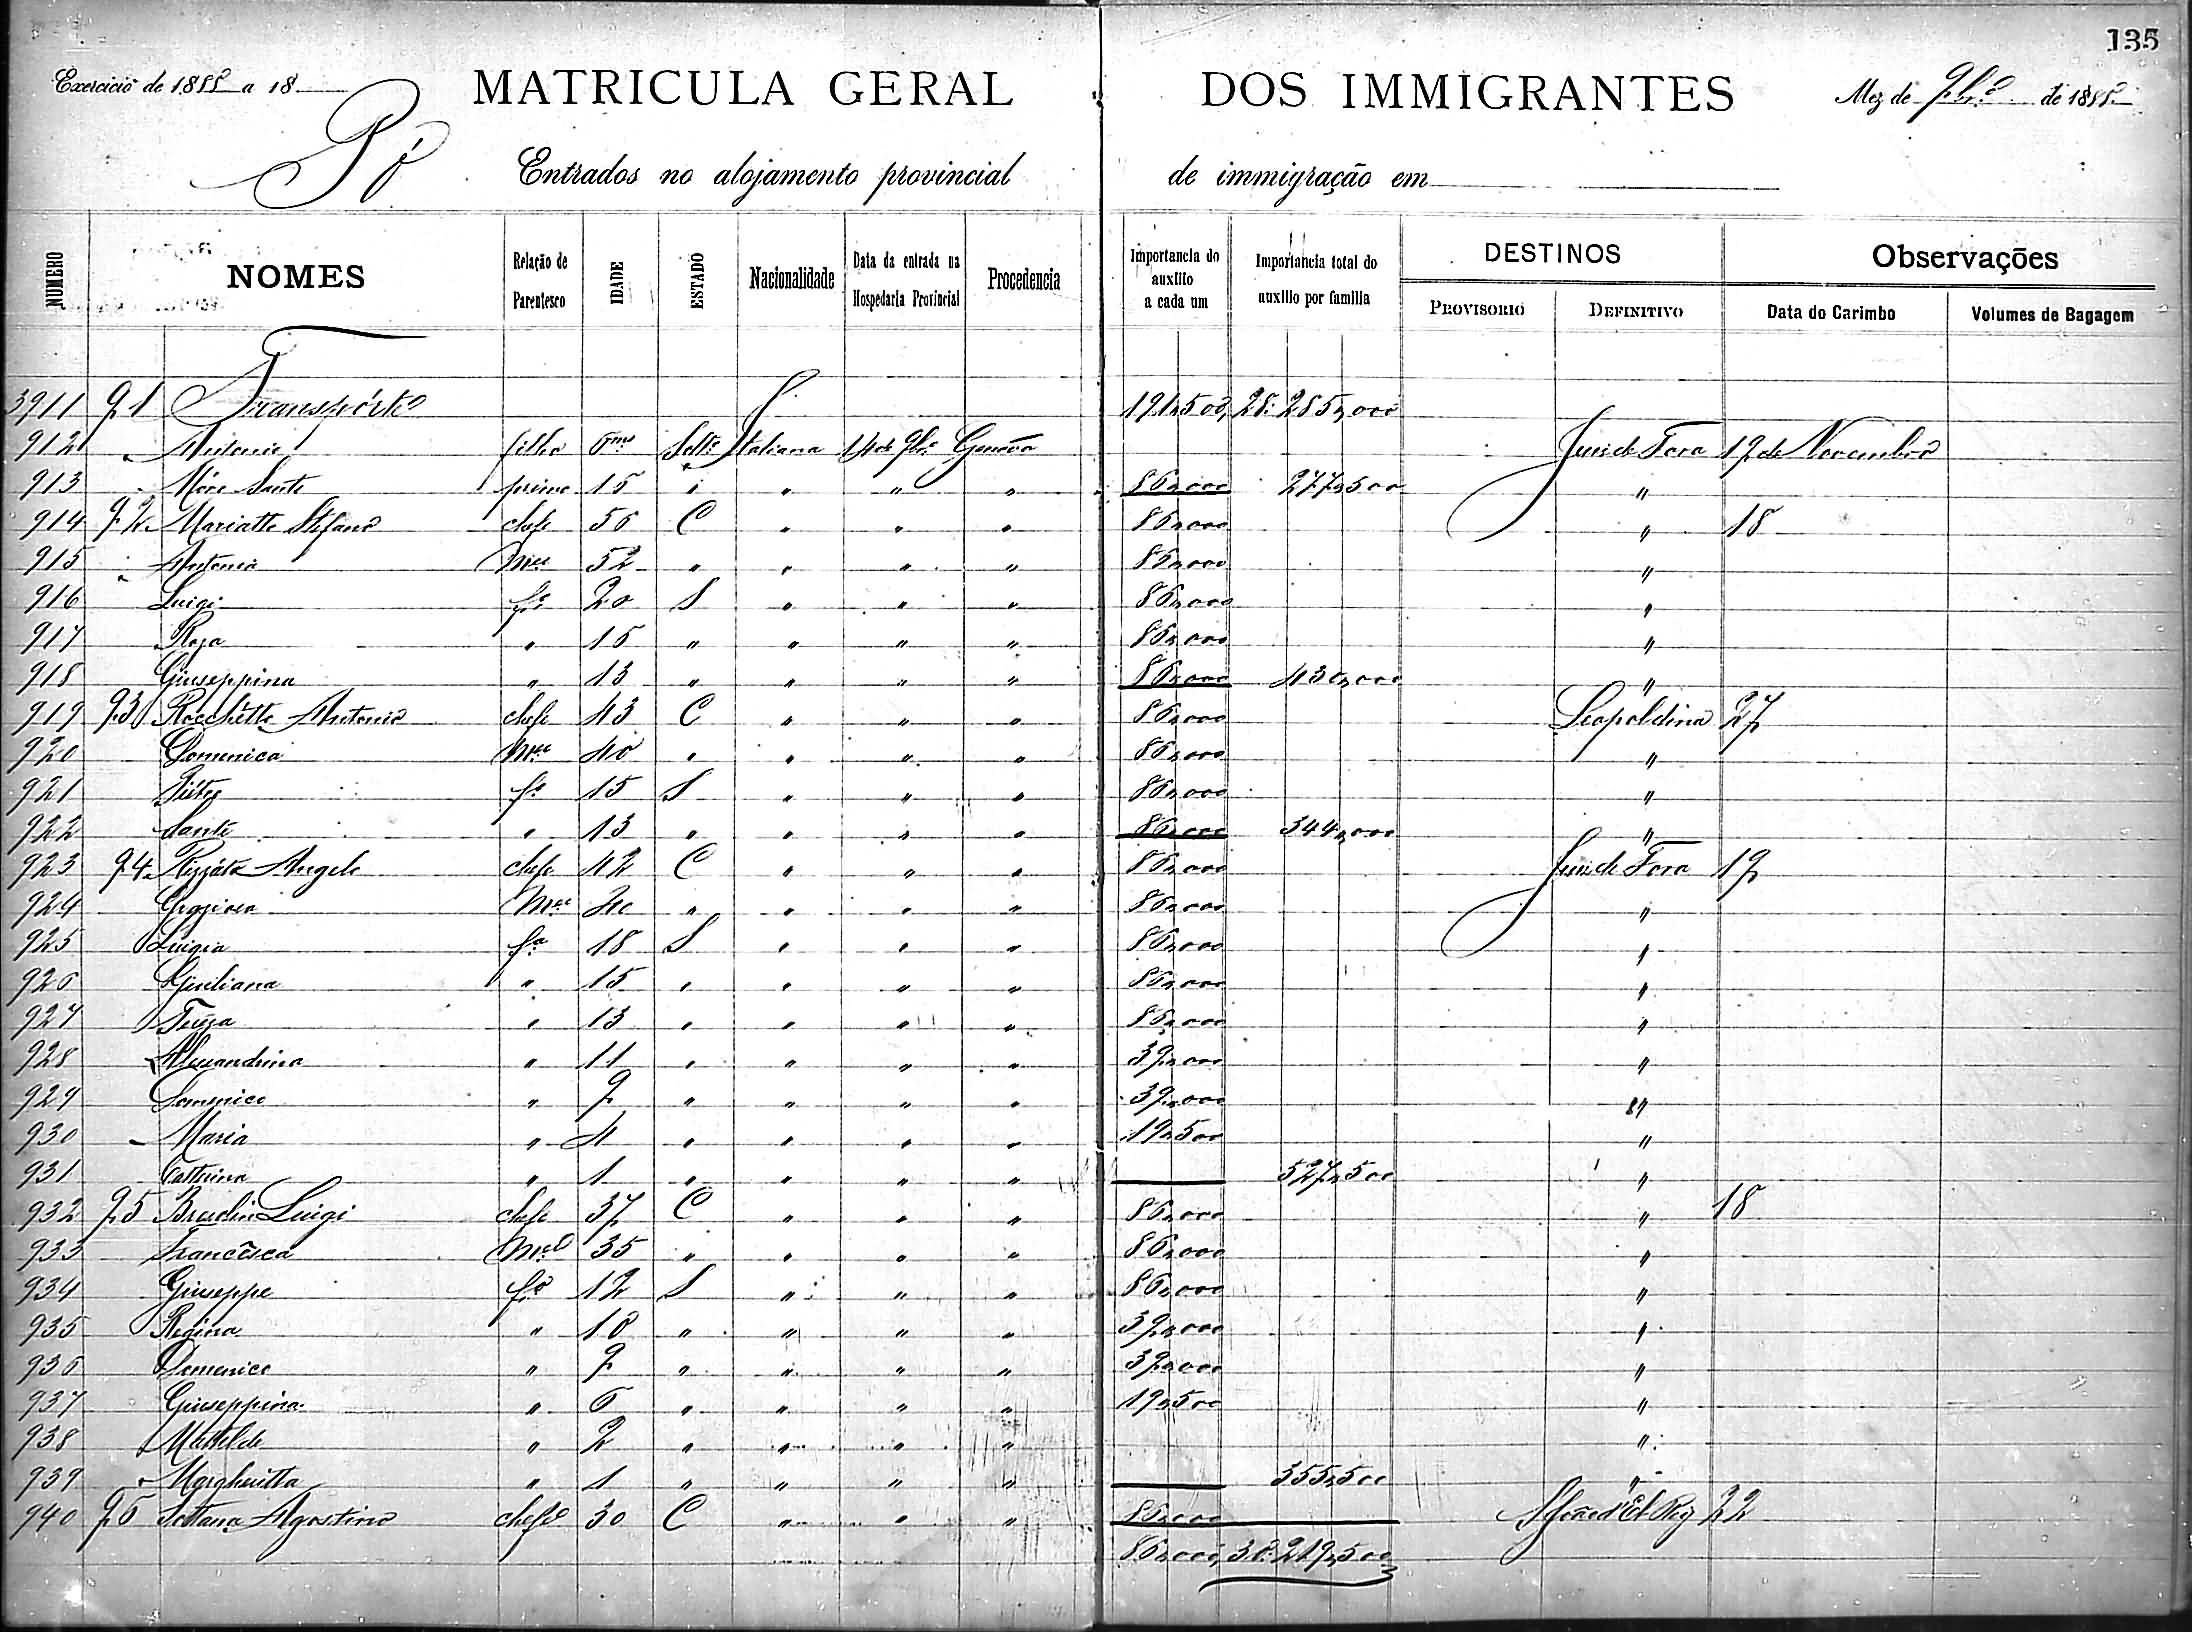 135
Exercicio de 1888 a 18
MATRICULA GERAL DOS IMMIGRANTES
Mez de 9br.º de 1888
Pó
Entrados no alojamento provincial de immigração em
NUMERO NOMES Relação de Parentesco IDADE ESTADO Nacionalidade Data da entrada na Hospedaria Provincial Procedencia Importancia do auxilio a cada um Importancia total do auxilio por familia DESTINOS PROVISORIO DEFINITIVO Observações Data do Carimbo Volumes de Bagagem
3911 91 Transporte 191,500 28:285,000
912 " Antonio filho 6ms Soltº Italiana 14 de 9brº Genova Juis de Fora 19 de Novembro
913 " Móro Sante primo 15 " " " " 86,000 277,500 "
914 92 Mariatto Stefano chefe 56 C " " " 86,000 " 18
915 " Antonia Mer 52 " " " " 86,000 "
916 Luigi fº 20 S " " " 86,000 "
917 Roza " 15 " " " " 86,000 "
918 Giuseppina " 13 " " " " 86,000 430,000 "
919 93 Rocchetto Antonio chefe 43 C " " " 86,000 Leopoldina 27
920 Domenica Mer 40 " " " " 86,000 "
921 Pietro fº 15 S " " " 86,000 "
922 Sante " 13 " " " " 86,000 344,000 "
923 94 Rizzáto Angelo chefe 42 C " " " 86,000 Juis de Fora 19
924 Mer 40 " " " " 86,000 "
925 Luigia fª 18 S " " " 86,000 "
926 Giuliana " 15 " " " " 86,000 "
927 Tereza " 13 " " " " 86,000 "
928 Alexandrina " 11 " " " " 39,000 "
929 Domenico " 9 " " " " 39,000 "
930 Maria " 4 " " " " 19,500 "
931 Catterina " 1 " " " " 527,500 "
932 95 Luigi chefe 37 C " " " 86,000 " 18
933 Francesca Mer 35 " " " " 86,000 "
934 Giuseppe fº 12 S " " " 86,000 "
935 Regina " 10 " " " " 39,000 "
936 Domenico " 9 " " " " 39,000 "
937 Giuseppina " 6 " " " " 19,500 "
938 Matilde " 2 " " " " "
939 " Margheritta " 1 " " " " 355,500 "
940 96 Agostino chefe 30 C " " " 86,000 S João d'El Rey 22
86,000 30:219,500